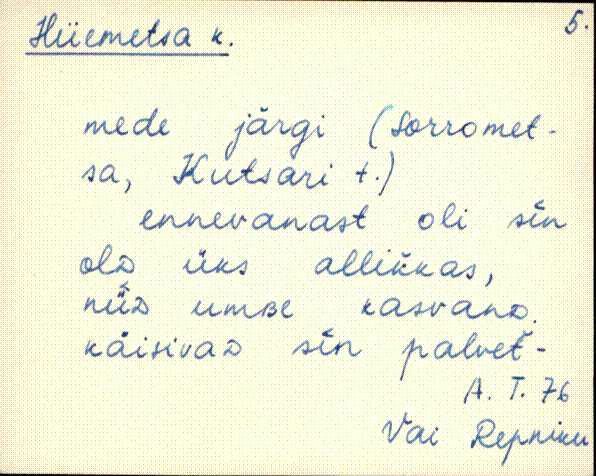 5.
Hüemetsa k.
mede järgi (Sorromet-
sa, Kutsari t.)
ennevanast oli sin
olD üks allikkas,
nüiD umBe kasvanD.
käisivaD sin palvet-
A. T. 76
Vai Repniku